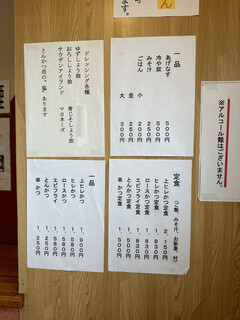 ます。
ドレッシング各種
ゆずしょう油　青じそしょう油
おろししょう油　マヨネーズ
サウザンアイランド
とんかつ用の、"塩"あります
一品
あげなす　５００円
冷や奴　２５０円
みそ汁　２５０円
ごはん　小　２００円
　　　　並　２５０円
　　　　大　３００円
※アルコール類はございません。
一品
上ヒレかつ　１，９００円
ヒレかつ　１，５８０円
ロースかつ　１，５８０円
エビフライ　１，５８０円
とんかつ　１，２５０円
串かつ　１，２５０円
定食　つご飯、みそ汁、お新香、付
上ヒレかつ定食　２，１５０円
ヒレかつ定食　１，８３０円
ロースかつ定食　１，８３０円
エビフライ定食　１，８３０円
とんかつ定食　１，５００円
串かつ定食　１，５００円